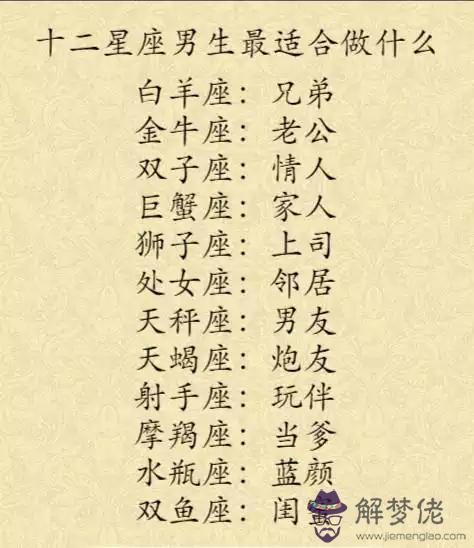 十二星座男生最适合做什么
白羊座：兄弟
金牛座：老公
双子座：情人
巨蟹座：家人
狮子座：上司
处女座：邻居
天秤座：男友
天蝎座：炮友
射手座：玩伴
摩羯座：当爹
水瓶座：蓝颜
双鱼座：闺
解梦佬
www.jiemenglao.com